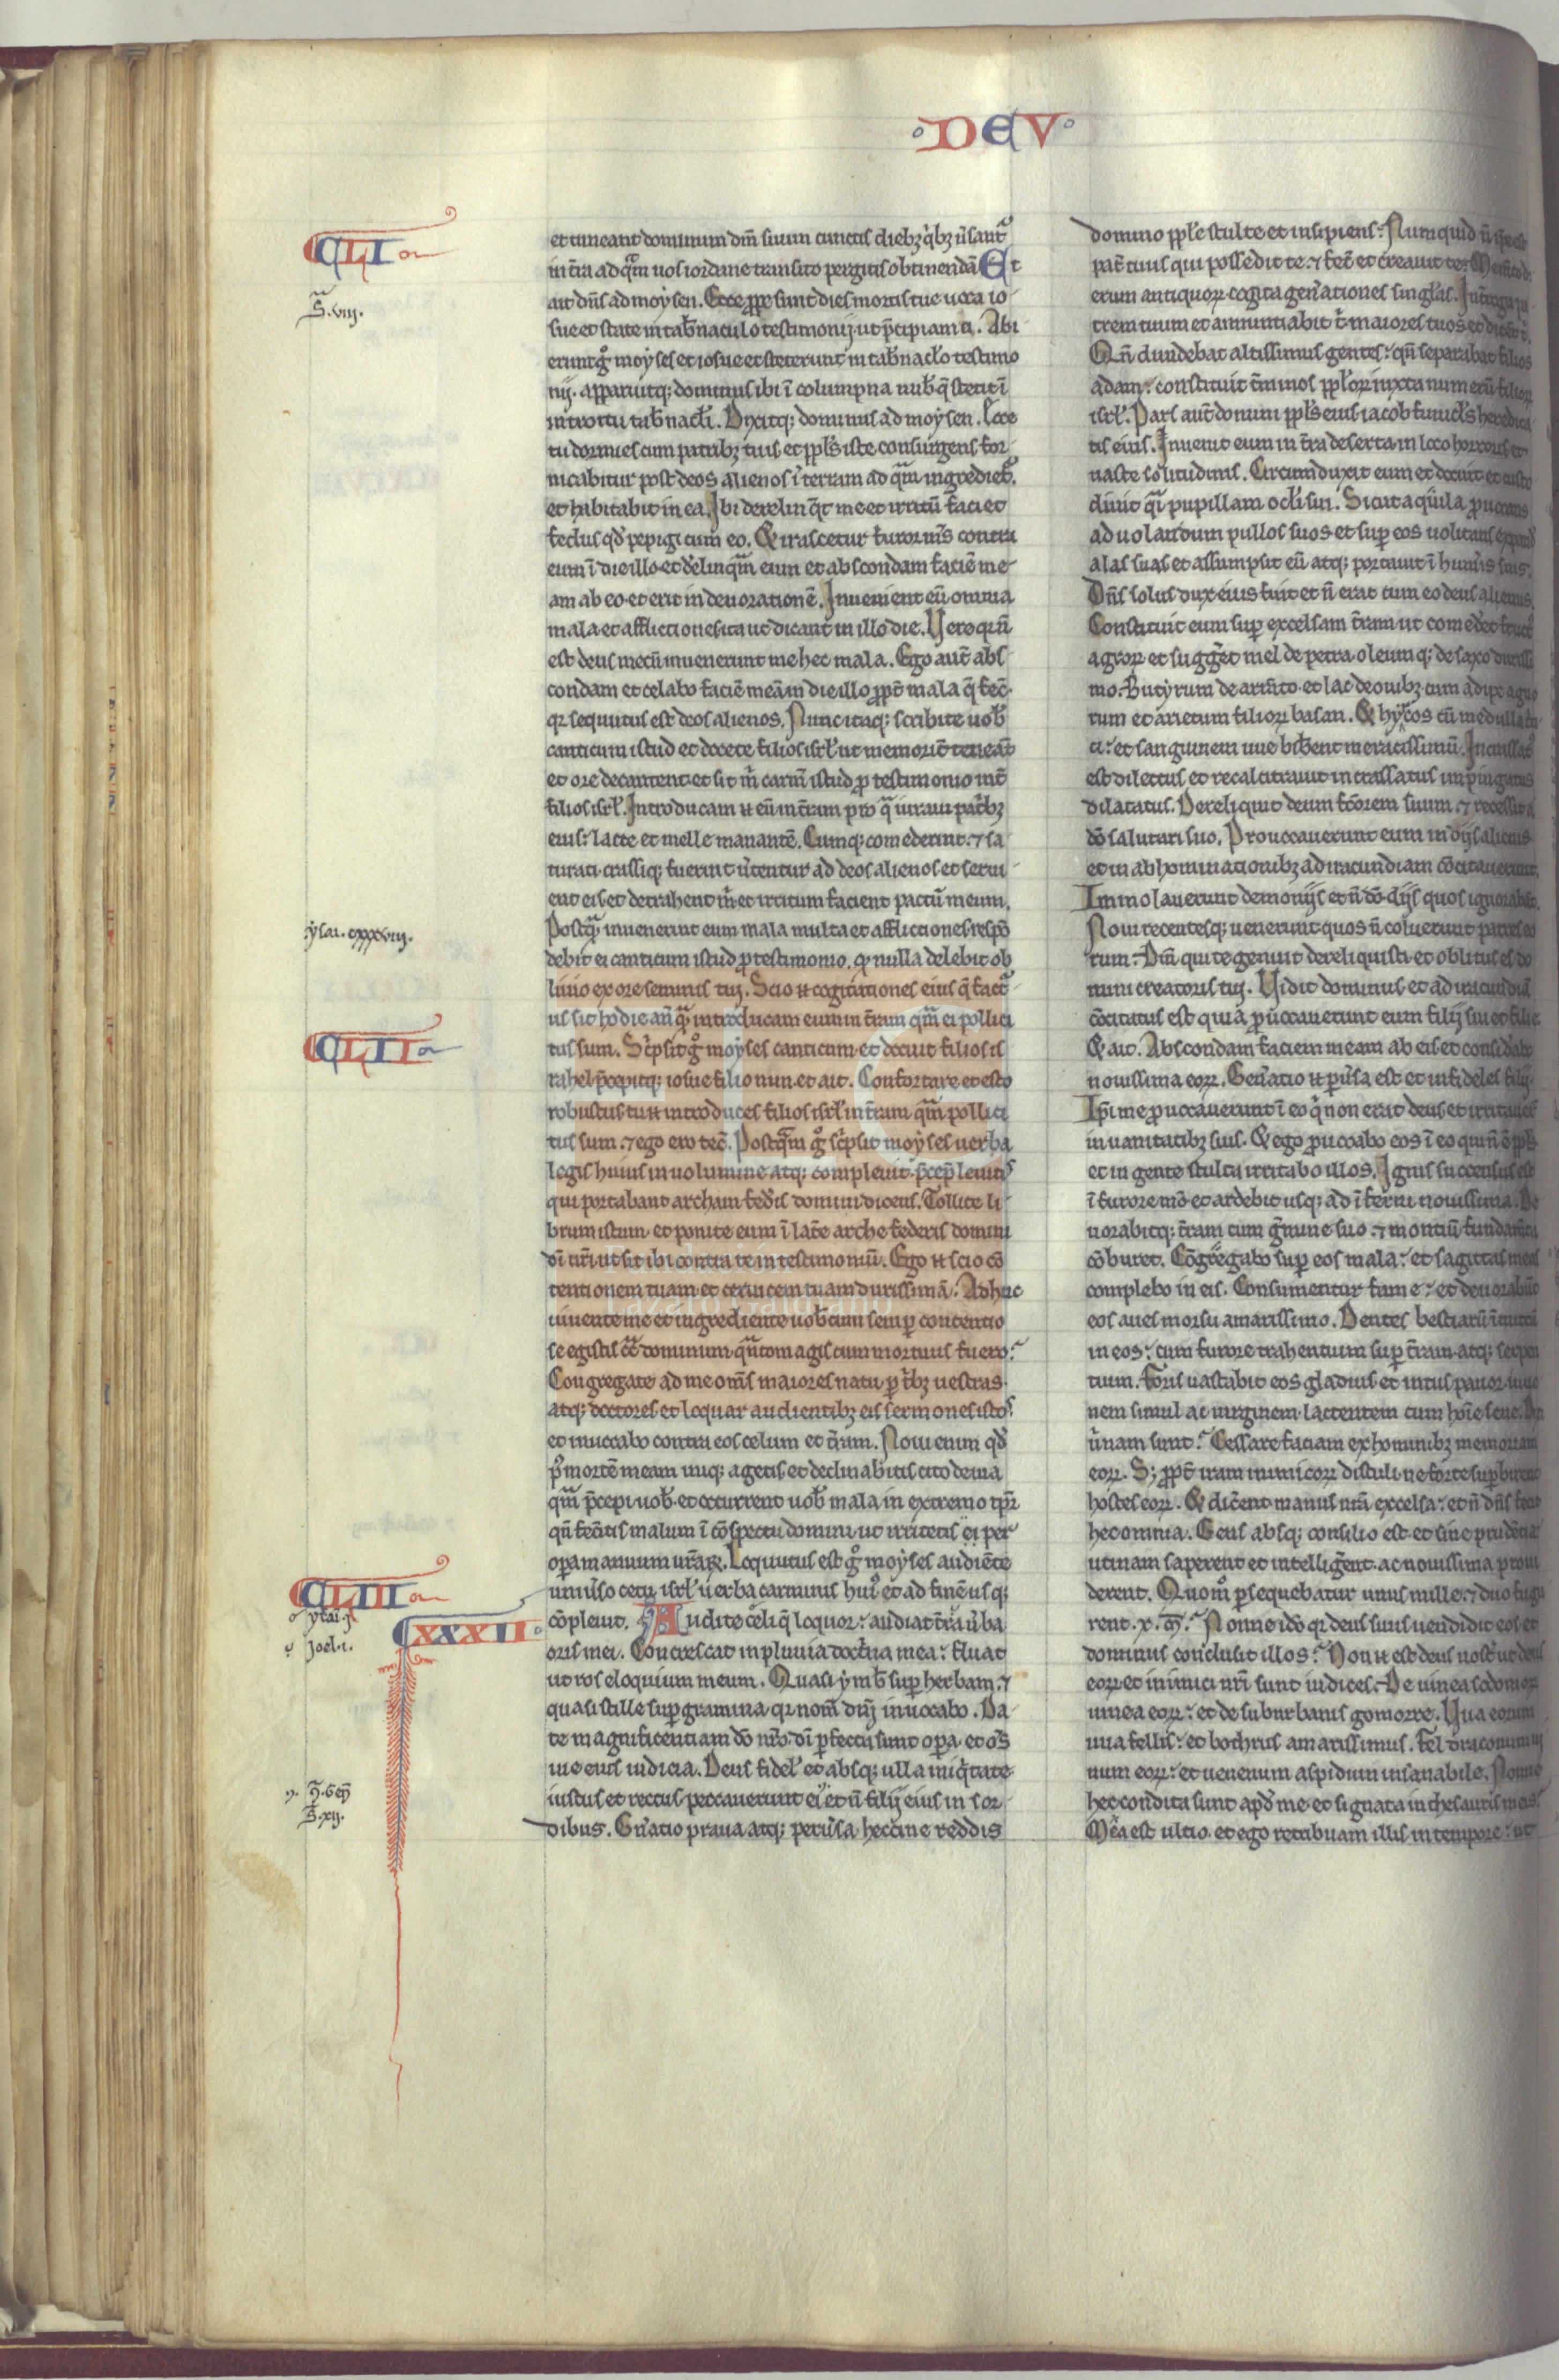 DEV
CLI
et timeant dominum dm̄ suum cunctis diebꝫ qͥbꝫ uͥsantͬ
in t̄ra ad qͣm uos iordane transito pergitis obtinendā Et
S̄. viij.
ait dn̄s ad moysen. Ecce ꝓpe sunt dies mortis tue uoca io
sue et state in tab̄naculo testimonij ut p̄cipiam ei. Abi
erunt gͦ moyses et iosue et steterunt in tab̄nacl̄o testimo
nij. apparuitqꝫ dominus ibi ī columpna nub̄ q̄ stetit ī
introitu tab̄nacl̄i. Dixitqꝫ dominus ad moysen. Ecce
tu dormies cum patribꝫ tuis et ppl̄s iste consurgens for
nicabitur post deos alienos ī terram ad qͣm ingredietͬ.
et habitabit in ea. Ibi derelinq̄t me et irritū faciet
fedus qd̄ pepigi cum eo. Et irascetur furor ms̄ contra
eum ī die illo et d̄elinqͣm eum et abscondam faciē me
am ab eo et erit in deuorationē. Inuenient eū omnia
mala et afflictiones ita ut dicant in illo die. Uere qꝛ n̄
est deus mecū inuenerunt me hec mala. Ego aut̄ abs
condam et celabo faciē meā in die illo ꝓpt̄ mala q̄ fec̄
qꝛ sequutus est deos alienos. Nunc itaqꝫ scribite uob̄
canticum istud et docete filios isrl̄ ut memorit̄ teneāt
et ore decantent et sit m̄ carm̄ istud ꝓ testimonio int̄
filios isrl̄. Introducam n̄ eū in t̄ram pro qͣ iuraui patͥbꝫ
eius: lacte et melle manantē. Cumqꝫ comederint ⁊ sa
turati crassiqꝫ fuerint ūtentur ad deos alienos et serui
ent eis et detrahent m̄ et irritum facient pactū meum.
ysai. cxxxviij.
Postqͣ inuenerint eum mala multa et afflictiones respō
debit ei canticum istud ꝓ testimonio. qͦ nulla delebit ob
liuio ex ore seminis tui. Scio n̄ cogitationes eius q̄ factͬ
us sit hodie an̄ qͣ introducam eum in t̄ram qͣm ei pollici
CLII
tus sum. Scͥpsit gͦ moyses canticum et docuit filios is
rahel p̄cepitqꝫ iosue filio nun et ait. Confortare et esto
robustus tu n̄ introduces filios isrl̄ in t̄ram qͣm pollici
tus sum ⁊ ego ero tec̄. Postqͣm gͦ scͥpsit moyses uerba
legis huius in uolumine atqꝫ compleuit p̄cep̄ leuitis
qui portabant archam fed̄is domini dicens. Tollite li
brum istum et ponite eum ī lat̄e arche federis domini
dī ur̄i ut sit ibi contra te in testimoniū. Ego n̄ scio cō
tentionem tuam et ceruicem tuam durissimā. Adhuc
uiuente me et ingrediente uob̄cum semp̄ contentio
se egistis cͣ dominum qn̄to magis cum mortuus fuero:
Congregate ad me om̄s maiores natu p̄ tͥbꝫ uestras
atqꝫ doctores et loquar audientibꝫ eis sermones istos
et inuocabo contra eos celum et t̄ram. Noui enim qd̄
pͦ mortē meam iniqꝫ agetis et declinabitis cito de uia
qͣm p̄cepi uob̄ et occurrent uob̄ mala in extremo tp̄r̄
qn̄ fec̄itis malum ī cōspectu domini ut irritetis ei per
CLIII
opa manuum ur̄aꝝ. Loquutus est gͦ moyses audiēte
uniūso cetu isrl̄ uerba carminis huiͦ et ad finē usqꝫ
ysai. j.
XXXII
cōpleuit. Audite celi q̄ loquor: audiat t̄ra ūba
Joel. i.
oris mei. Concrescat in pluuia doctͥna mea: fluat
ut ros eloquium meum. Quasi ymb̄ sup herbam ⁊
quasi stille sup gramina qꝛ nom̄ dn̄i inuocabo. Da
te magnificentiam dō nr̄o dī p̄fecta sunt opa et oēs
uie eius iudicia. Deus fidel̄ et absqꝫ ulla iniqͥtate
S̄. xij.
iustus et rectus peccauerunt ei et n̄ filij eius in sor
dibus. Gn̄atio praua atqꝫ peruͥsa heccine reddis
domino ppl̄e stulte et insipiens: Numquid n̄ ip̄e est
pat̄ tuus qui possedit te ⁊ fec̄ et creauit te:
erum antiquoꝝ cogita gen̄ationes singl̄as.
trem tuum et annuntiabit t̄ maiores tuos et dicēt t̄.
Qn̄ diuidebat altissimus gentes: qn̄ separabat filios
adam: constituit t̄minos ppl̄oꝝ iuxta numerū filioꝝ
isrl̄. Pars aut̄ domini ppl̄s eius iacob funicl̄s heredita
tis eius. Inuenit eum in t̄ra deserta in loco horroris et
uaste solitudinis. Circumduxit eum et docuit et custo
diuit qͣi pupillam ocl̄i sui. Sicut aquila ꝓuocans
ad uolandum pullos suos et sup eos uolitans expandͥ
alas suas et assumpsit eū atqꝫ portauit ī hum̄is suis.
Dn̄s solus dux eius fuit et n̄ erat cum eo deus alienus.
Constituit eum sup excelsam t̄ram ut comed̄et fruct̄
agroꝝ et sugḡet mel de petra oleumqꝫ de saxo durissi
mo. Butyrum de arm̄to et lac de ouibꝫ cum adipe agno
rum et arietum filioꝝ basan. Et hyrcos cū medulla tri
ci: et sanguinem uue bib̄ent meracissimū. Incrassatͦ
est dilectus et recalcitrauit incrassatus inpinguatus
dilatatus. Dereliquit deum fc̄orem suum ⁊ recessit a
dō salutari suo. Prouocauerunt eum in dijs alienis
et in abhominationibꝫ ad iracundiam cōcitauerunt.
Immolauerunt demonijs et n̄ dō dijs quos ignorabāt.
Noui recentesqꝫ uenerunt quos n̄ coluerunt patres eo
rum: Dm̄ qui te genuit dereliquisti et oblitus es do
mini creatoris tui. Uidit dominus et ad iracundiā
cōcitatus est quia ꝓuocauerunt eum filij sui et filie
Et ait. Abscondam faciem meam ab eis et considabo
nouissima eoꝝ. Gen̄atio n̄ peruͥsa est et infideles filij.
Ip̄i me ꝓuocauerunt ī eo qͥ non erat deus et irritauert̄
in uanitatibꝫ suis. Et ego ꝓuocabo eos ī eo qui n̄ ē ppl̄s
et in gente stulta irritabo illos. Ignis succensus est
ī furore mō et ardebit usqꝫ ad īferni nouissima. De
uorabitqꝫ t̄ram cum ḡmine suo ⁊ montiū fundam̄ta
cōburet. Cōgregabo sup eos mala: et sagittas meas
complebo in eis. Consumentur fame: et deuorabūt
eos aues morsu amarissimo. Dentes bestiarū īmittā
in eos: cum furore trahentium sup t̄ram atqꝫ serpen
tium. Foris uastabit eos gladius et intus pauor iuue
nem simul ac uirginem lactentem cum hoīe sene. Dixi
ubinam sunt: Cessare faciam ex hominibꝫ memoriam
eoꝝ. Sꝫ ꝓpt̄ iram inimicoꝝ distuli ne forte sup̄birent
hostes eoꝝ. Et dic̄ent manus nr̄a excelsa: et n̄ dn̄s fecit
hec omnia. Gens absqꝫ consilio est et sine prudētia
utinam saperent et intelliḡent ac nouissima proui
derent. Quomͦ p̄sequebatur unus mille ⁊ duo fuga
rent .x. m̄. Nonne idō qꝛ deus suus uendidit eos et
dominus conclusit illos: Non n̄ est deus nost̄ ut deus
eoꝝ et inimici nr̄i sunt iudices. De uinea sodomoꝝ
uinea eoꝝ: et de suburbanis gomorre. Uua eorum
uua fellis: et bothrus amarissimus. Fel draconum ui
num eoꝝ: et uenenum aspidum insanabile. Nonne
hec condita sunt apd̄ me et signata in thesauris meis:
Mea est ultio et ego retribuam illis in tempore: ut